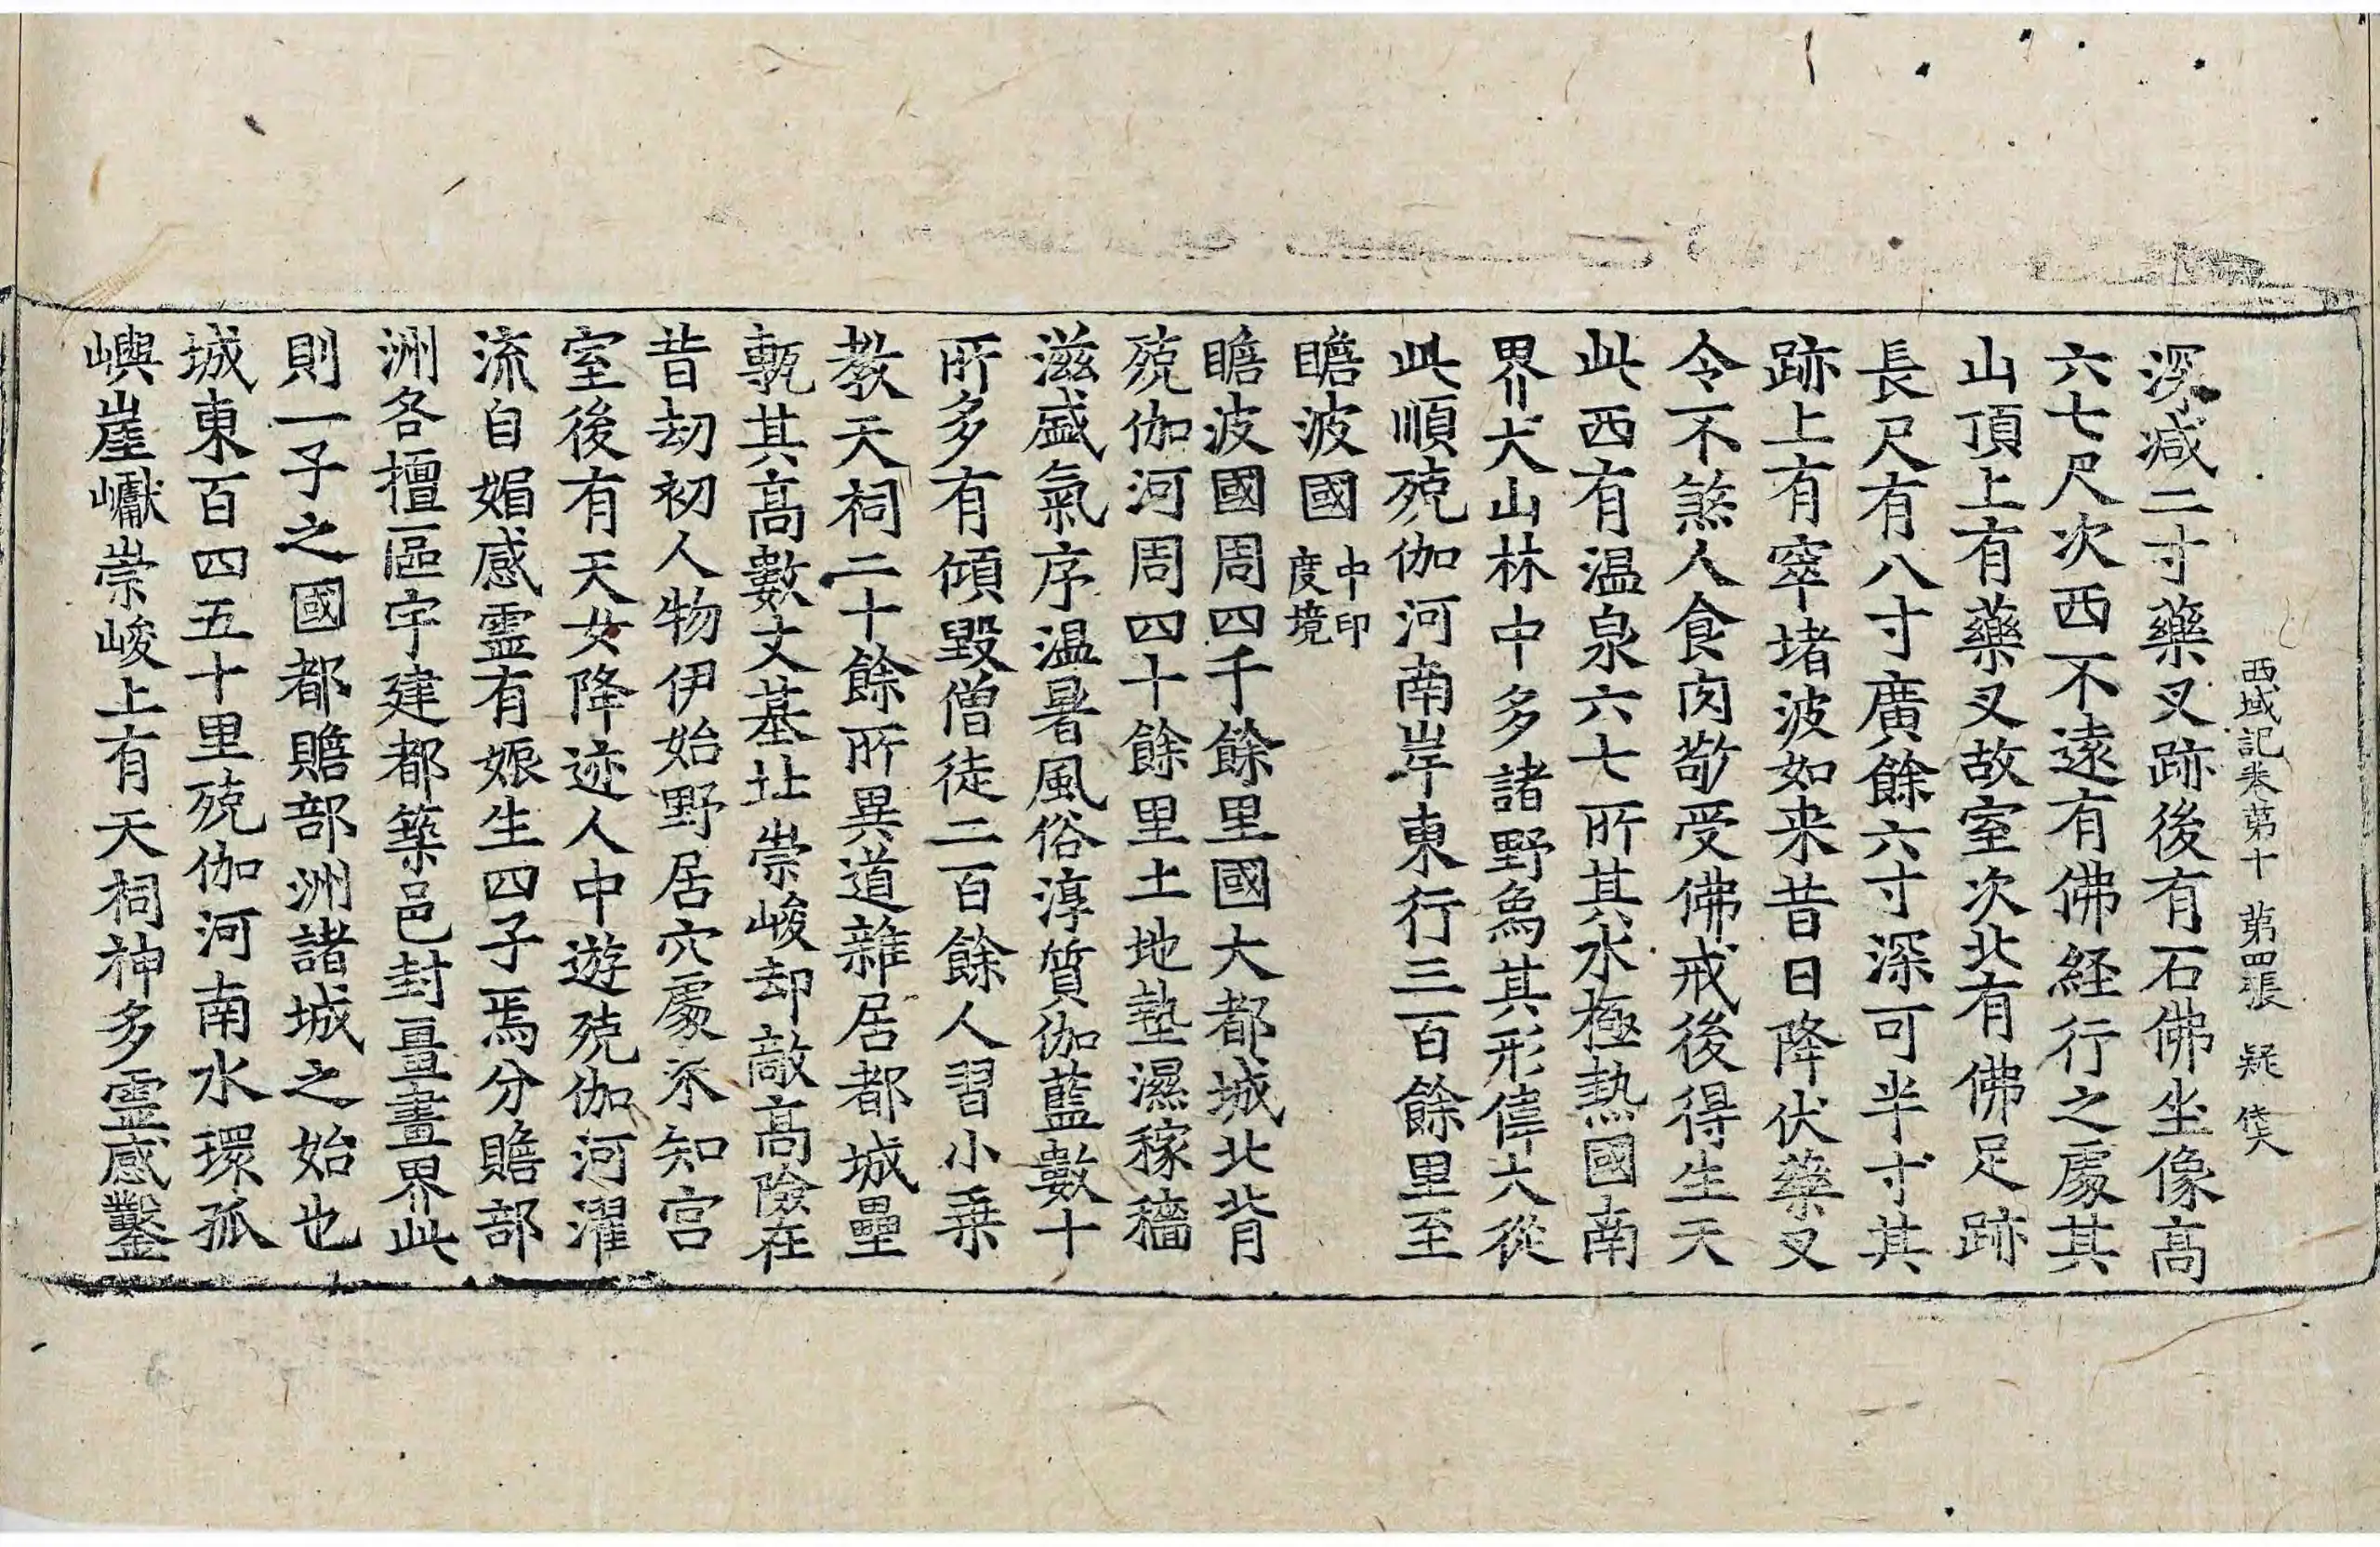 西域記卷第十 第四張 疑
深減二寸藥叉跡後有石佛坐像高
六七尺次西不遠有佛経行之處其
山頂上有藥叉故室次北有佛足跡
長尺有八寸廣餘六寸深可半寸其
跡上有窣堵波如来昔日降伏藥叉
令不煞人食肉敬受佛戒後得生天
此西有温泉六七所其水極熱國南
界大山林中多諸野象其形偉大從
此順殑伽河南岸東行三百餘里至
瞻波國中印度境
瞻波國周四千餘里國大都城北背
殑伽河周四十餘里土地墊濕稼穡
滋盛氣序温暑風俗淳質伽藍數十
所多有傾毀僧徒二百餘人習小乗
教天祠二十餘所異道雜居都城壘
甎其高數丈基址崇峻却敵高險在
昔劫初人物伊始野居穴處未知宮
室後有天女降迹人中遊殑伽河濯
流自媚感霊有娠生四子焉分贍部
洲各擅區宇建都築邑封畺畫界此
則一子之國都贍部洲諸城之始也
城東百四五十里殑伽河南水環孤
嶼崖巘崇峻上有天祠神多霊感鑿